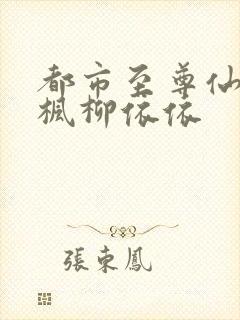 都市至尊仙
楓柳依依
張東鳳